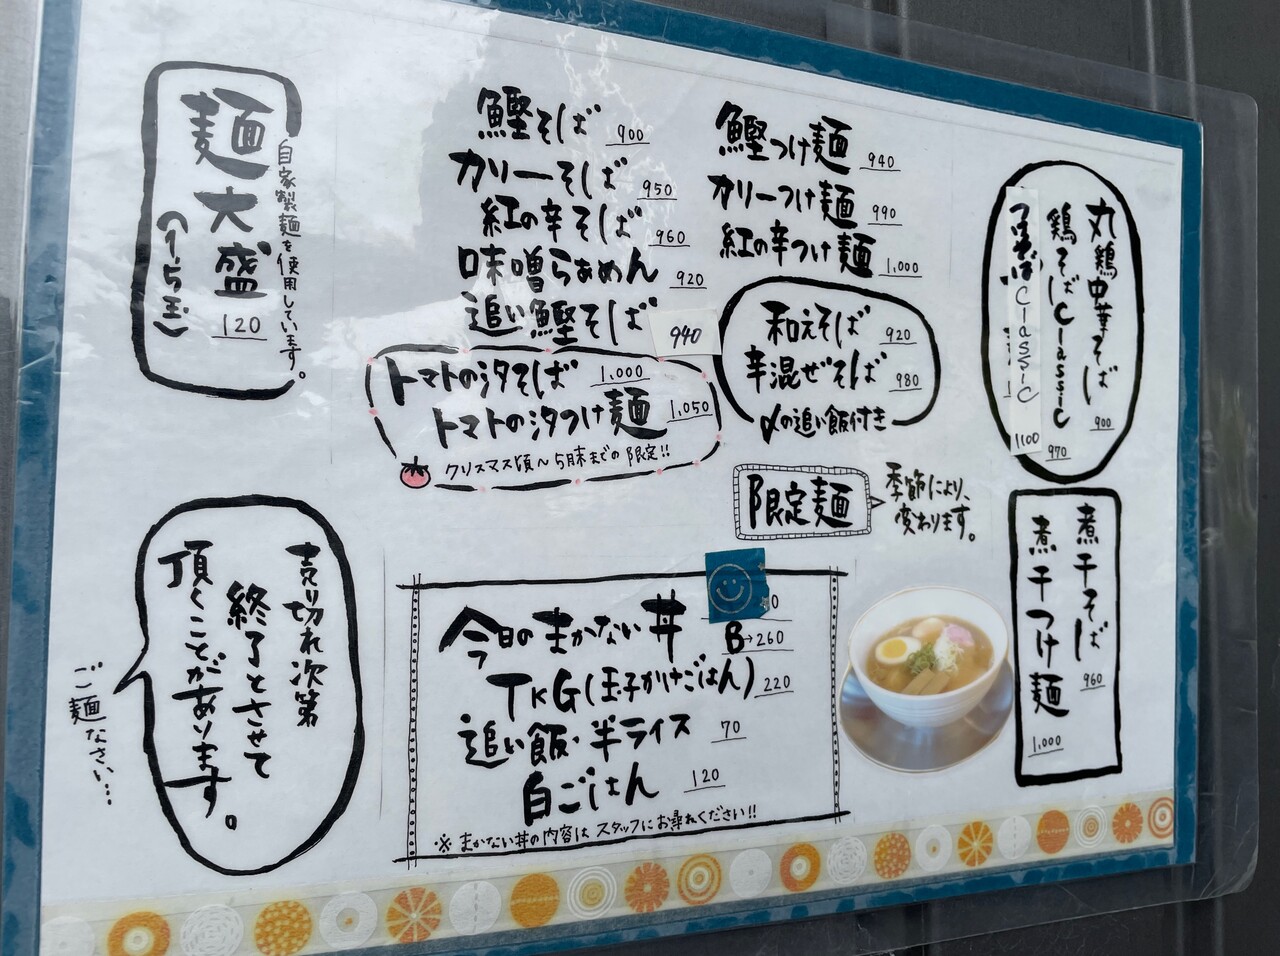 麺大盛
(1.5玉)
120
自家製麺を使用しています。
鰹そば 900
カリーそば 950
紅の辛そば 960
味噌らぁめん 920
追い鰹そば 940
トマトの汐そば 1,000
トマトの汐つけ麺 1,050
クリスマス頃〜5月末までの限定!!
鰹つけ麺 940
カリーつけ麺 990
紅の辛つけ麺 1,000
和えそば 920
辛混ぜそば 980
〆の追い飯付き
限定麺
季節により、
変わります。
丸鶏中華そば 900
鶏そばClassic 970
Classic 1100
煮干そば 960
煮干つけ麺 1,000
売り切れ次第
終了とさせて
頂くことがあります。
ご麺なさい…
今日のまかない丼
B→260
TKG(玉子かけごはん) 220
追い飯・半ライス 70
白ごはん 120
※まかない丼の内容はスタッフにお尋ねください!!